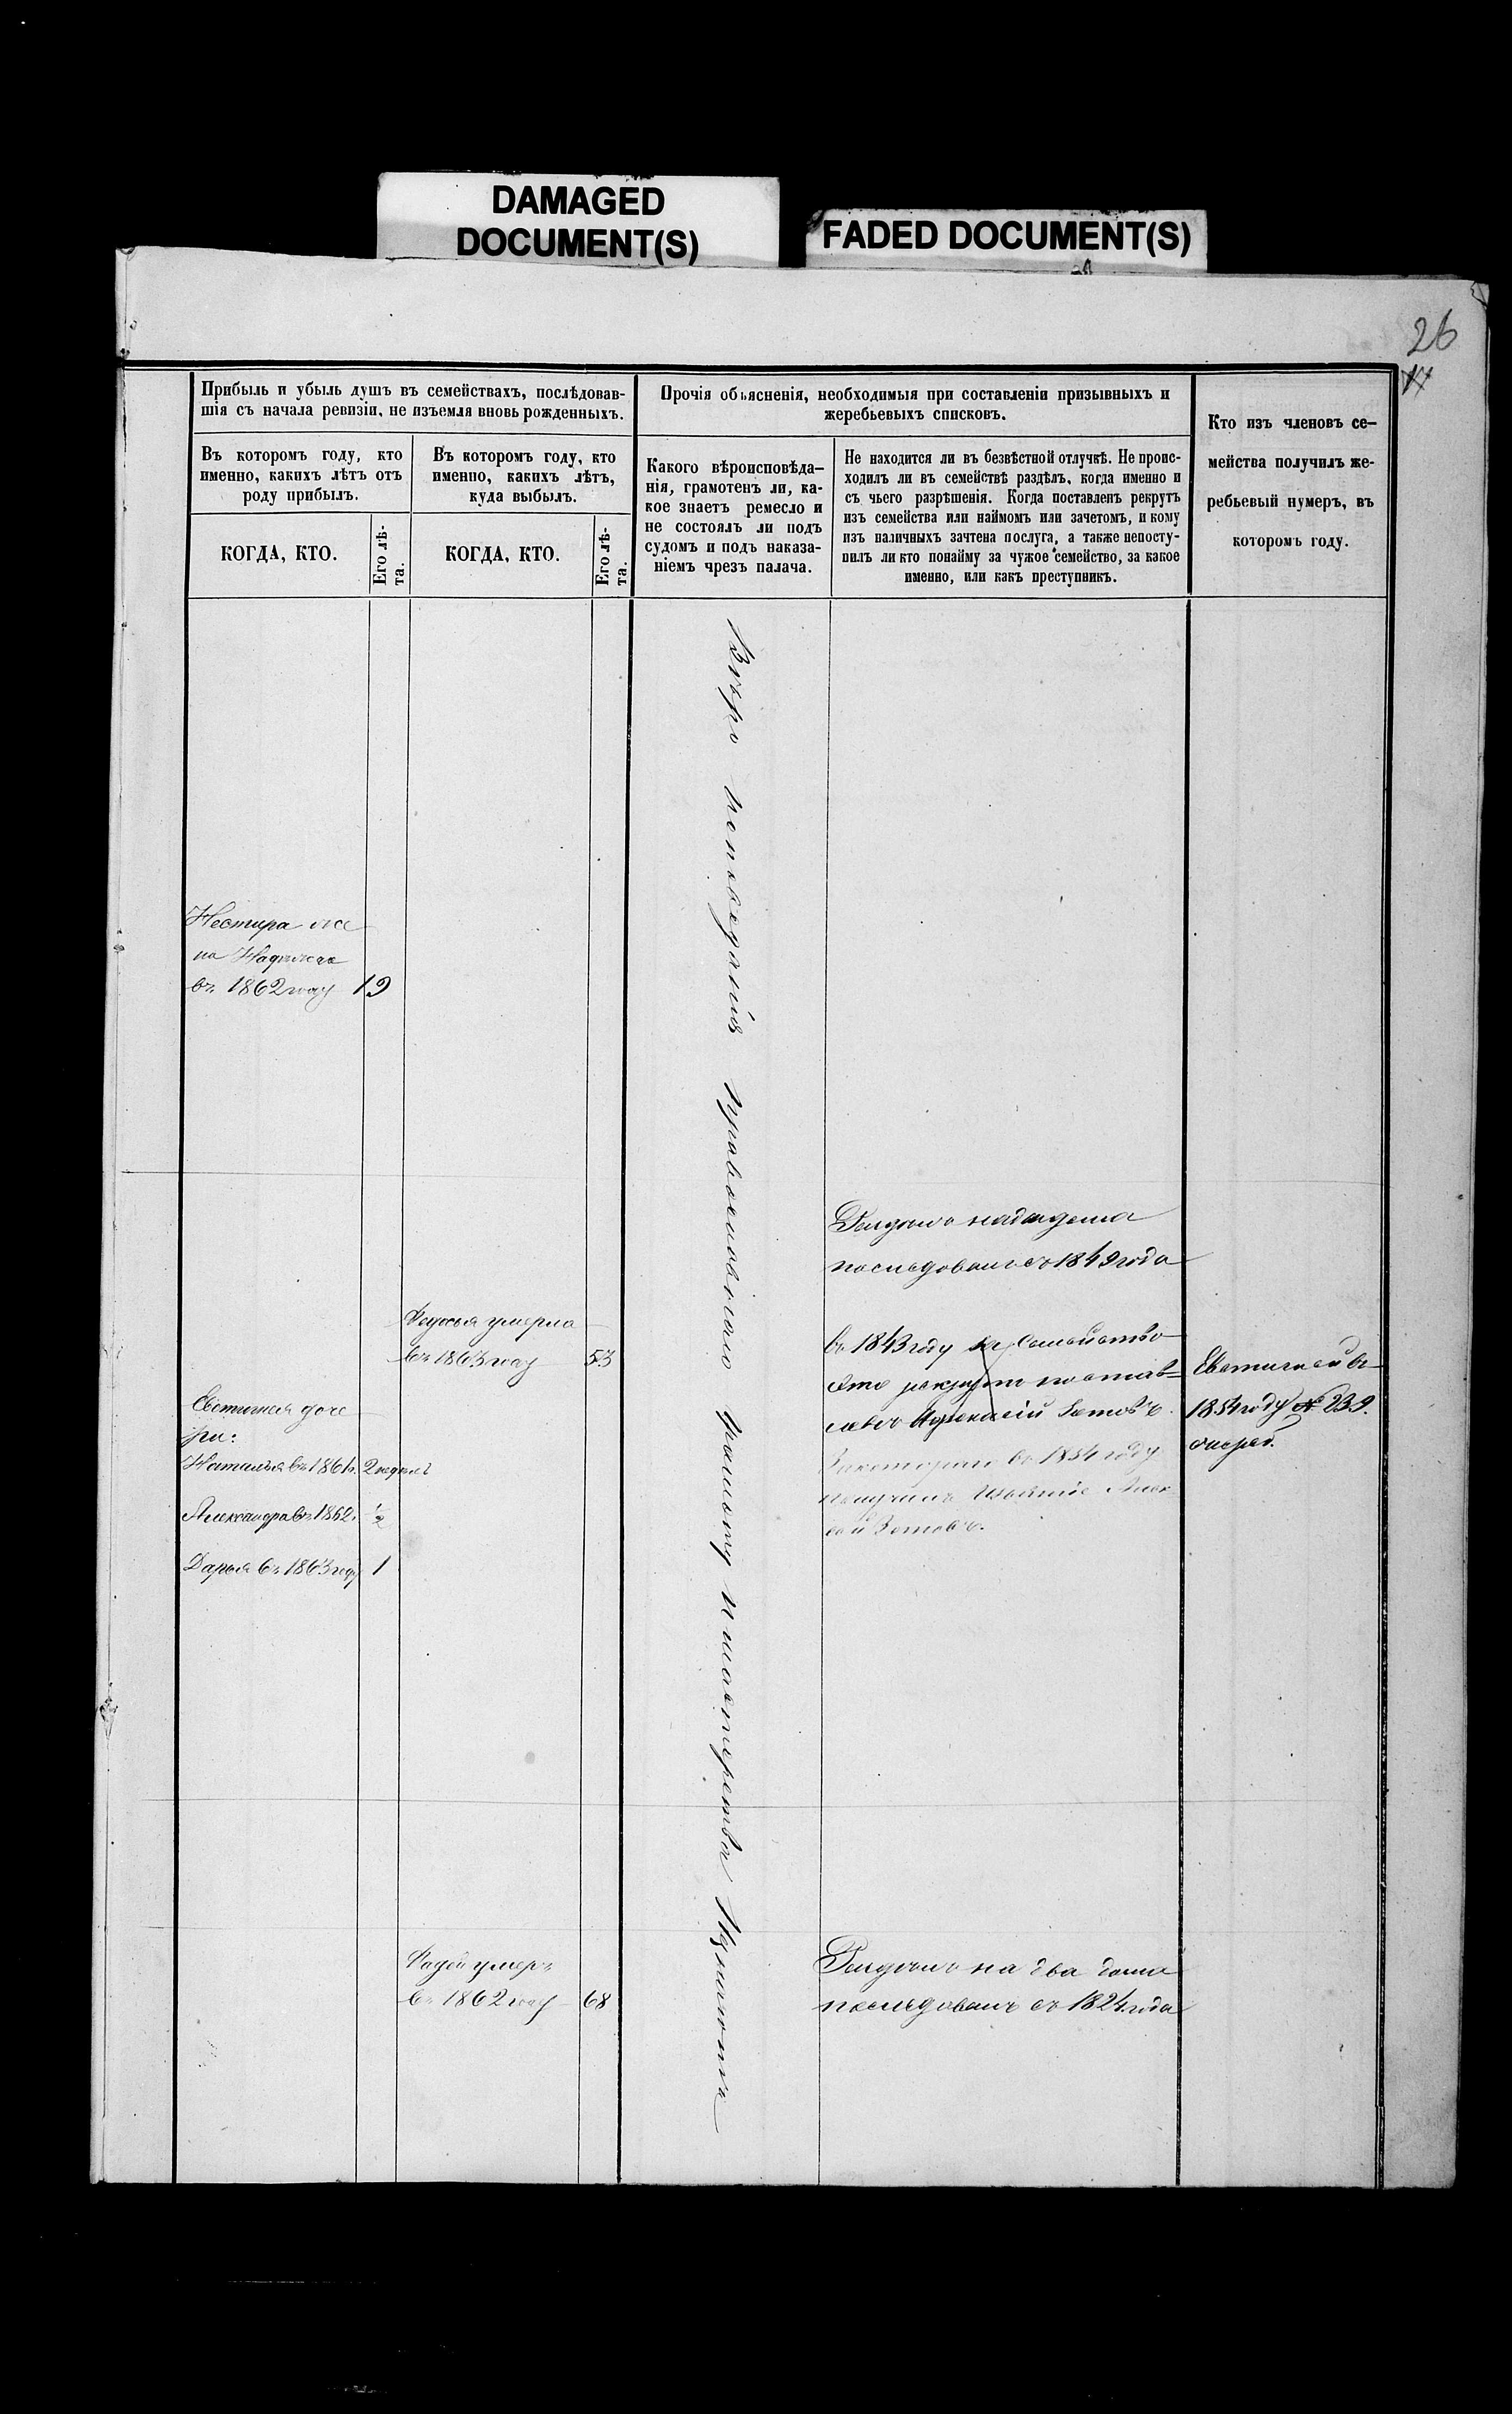 DAMAGED
DOCUMENT(S)
FADED DOCUMENT(S)
26
Прибыль и убыль душъ въ семействахъ, послѣдовав-
шія съ начала ревизіи, не изъемля вновь рожденныхъ.
Прочія объясненія, необходимыя при составленіи призывныхъ и
жеребьевыхъ списковъ.
Кто изъ членовъ се-
мейства получилъ же-
ребьевый нумеръ, въ
которомъ году.
Въ которомъ году, кто
именно, какихъ лѣтъ отъ
роду прибылъ.
Въ которомъ году, кто
именно, какихъ лѣтъ,
куда выбылъ.
Какого вѣроисповѣда-
нія, грамотенъ ли, ка-
кое знаетъ ремесло и
не состоялъ ли подъ
судомъ и подъ наказа-
ніемъ чрезъ палача.
Не находится ли въ безвѣстной отлучкѣ. Не проис-
ходилъ ли въ семействѣ раздѣлъ, когда именно и
съ чьего разрѣшенія. Когда поставленъ рекрутъ
изъ семейства или наймомъ или зачетомъ, и кому
изъ наличныхъ зачтена послуга, а также непосту-
пилъ ли кто понайму за чужое семейство, за какое
именно, или какъ преступникъ.
КОГДА, КТО.
Его лѣ-
та.
КОГДА, КТО.
Его лѣ-
та.
Вѣро исповеданія православнаго грамоту и мастерства
Нестира же
на
въ 1862 году 19
на два дома
последовалъ съ 1849 года
умерла
въ 1863 году 53
въ 1843 году за семейство
это рекрутъ постав-
ленъ Зотовъ
въ 1854 году
получилъ
Зотовъ.
Евстигней въ
1854 году № 239.
Евстигнея доче
ри:
Наталья въ 1861г. 2 недель
Александра въ 1862. 1/2
Дарья въ 1863 году 1
Фадей умеръ
въ 1862 году 68
на два дома
последовалъ съ 1824 года